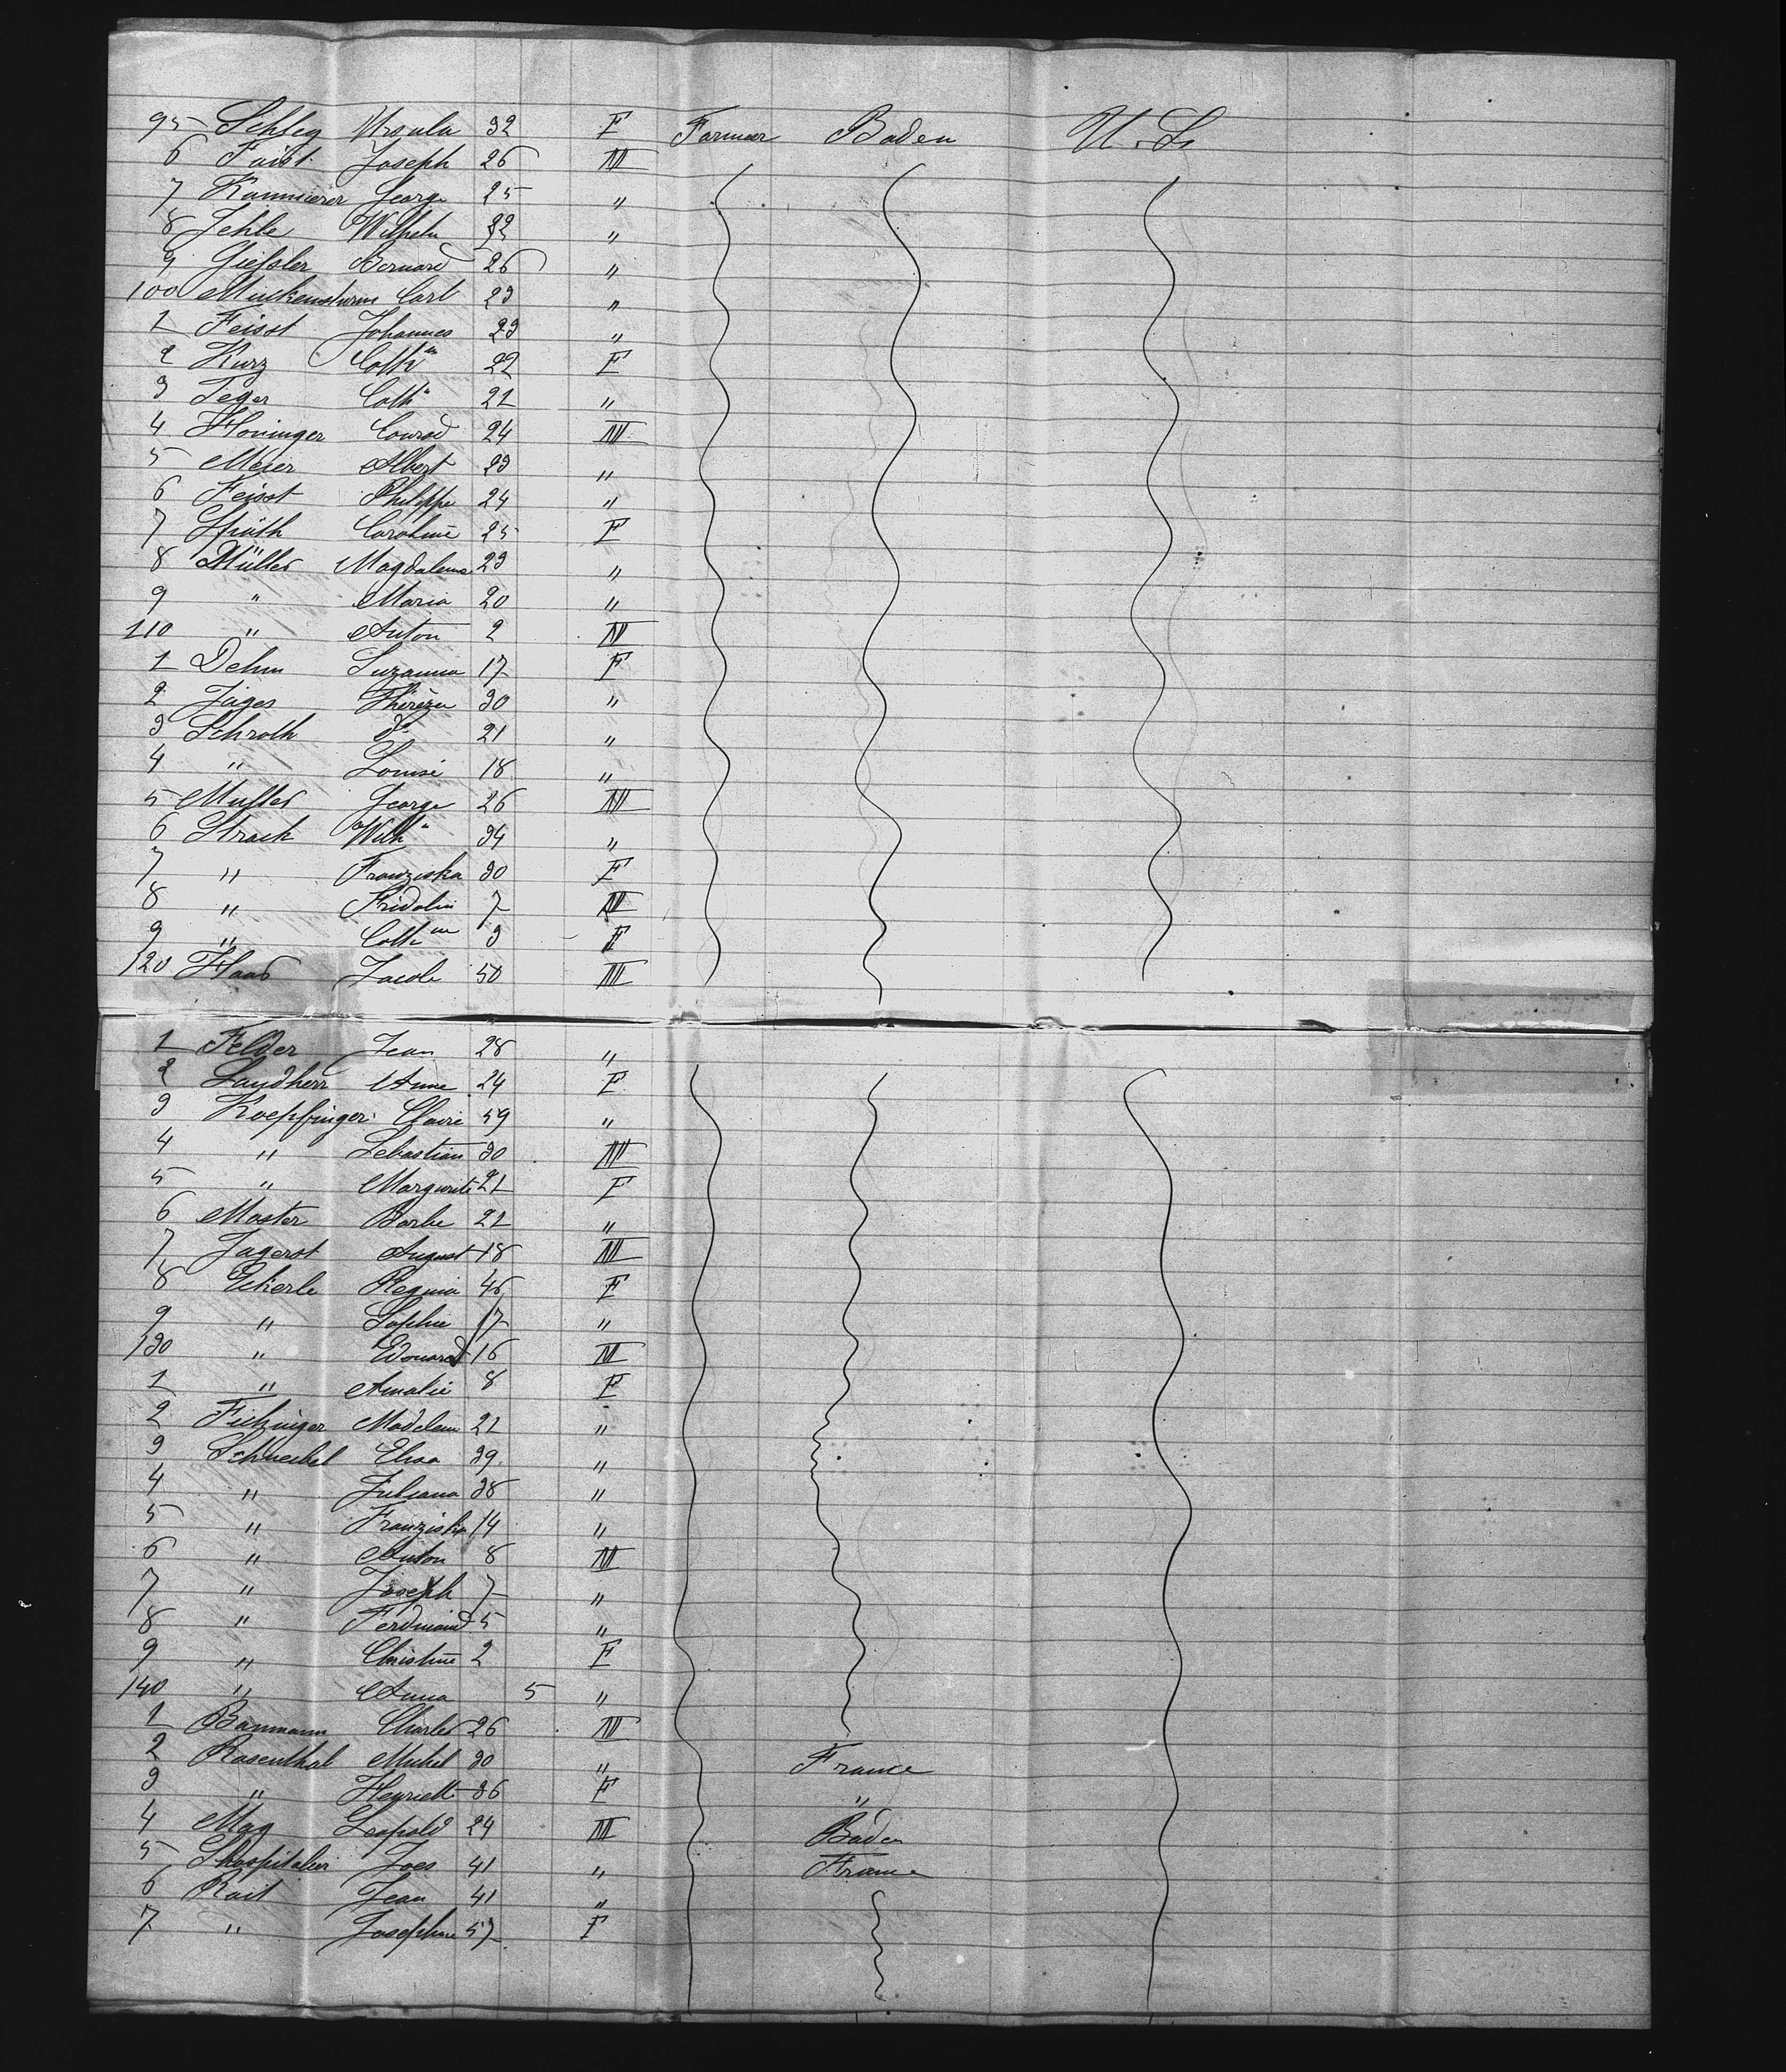 95 Schley Ursula 32 F Farmer Baden U. S.
6 Faist Joseph 26 M
7 Kammerer George 25 "
8 Jehle Wilhelm 22 "
9 Giessler Bernard 26 "
100 Muckensturm Carl 23 "
1 Feisst Johannes 23 "
2 Kurz Cathne 22 F
3 Jeger Cath 21 "
4 Honinger Conrad 24 M
5 Meier Albert 23 "
6 Feisst Philippe 24 "
7 Späth Caroline 25 F
8 Müller Magdalena 23 "
9 " Maria 20 "
110 " Anton 2 M
1 Dehm Suzanna 17 F
2 Jäger Thérèze 30 "
3 Schroth do 21 "
4 " Louise 18 "
5 Muller George 26 M
6 Strack Wilh 34 "
7 " Franziska 30 F
8 " Fridolin 7 M
9 " Cathne 3 F
120 Haas Jacob 50 M
1 Felder Jean 28 "
2 Landherr Anne 24 F
3 Koepfinger Claire 59 "
4 " Sebastian 30 M
5 " Margurite 21 F
6 Moster Barbe 21 "
7 Jagerst August 18 M
8 Eckerle Regina 46 F
9 " Sophie 17 "
130 " Edouard 16 M
1 " Amalie 8 F
2 Madelein 21 "
3 Schnebel Elisa 39 "
4 " Juliana 38 "
5 " Franziska 14 "
6 " Anton 8 M
7 " Joseph 7 "
8 " Ferdinand 5 "
9 " Christine 2 F
140 " Anna 5 "
1 Baumann Charles 26 M
2 Rosenthal Michel 30 " France
3 " Henriett 36 F "
4 May Leopold 24 M Baden
5 41 " France
6 Jean 41 "
7 " Josephine 57 F